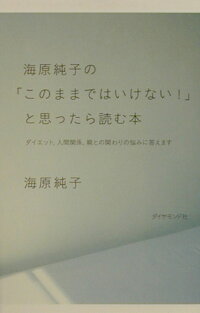 海原純子の
「このままではいけない!」
と思ったら読む本
ダイエット、人間関係、親との関わりの悩みに答えます
海原純子
ダイヤモンド社